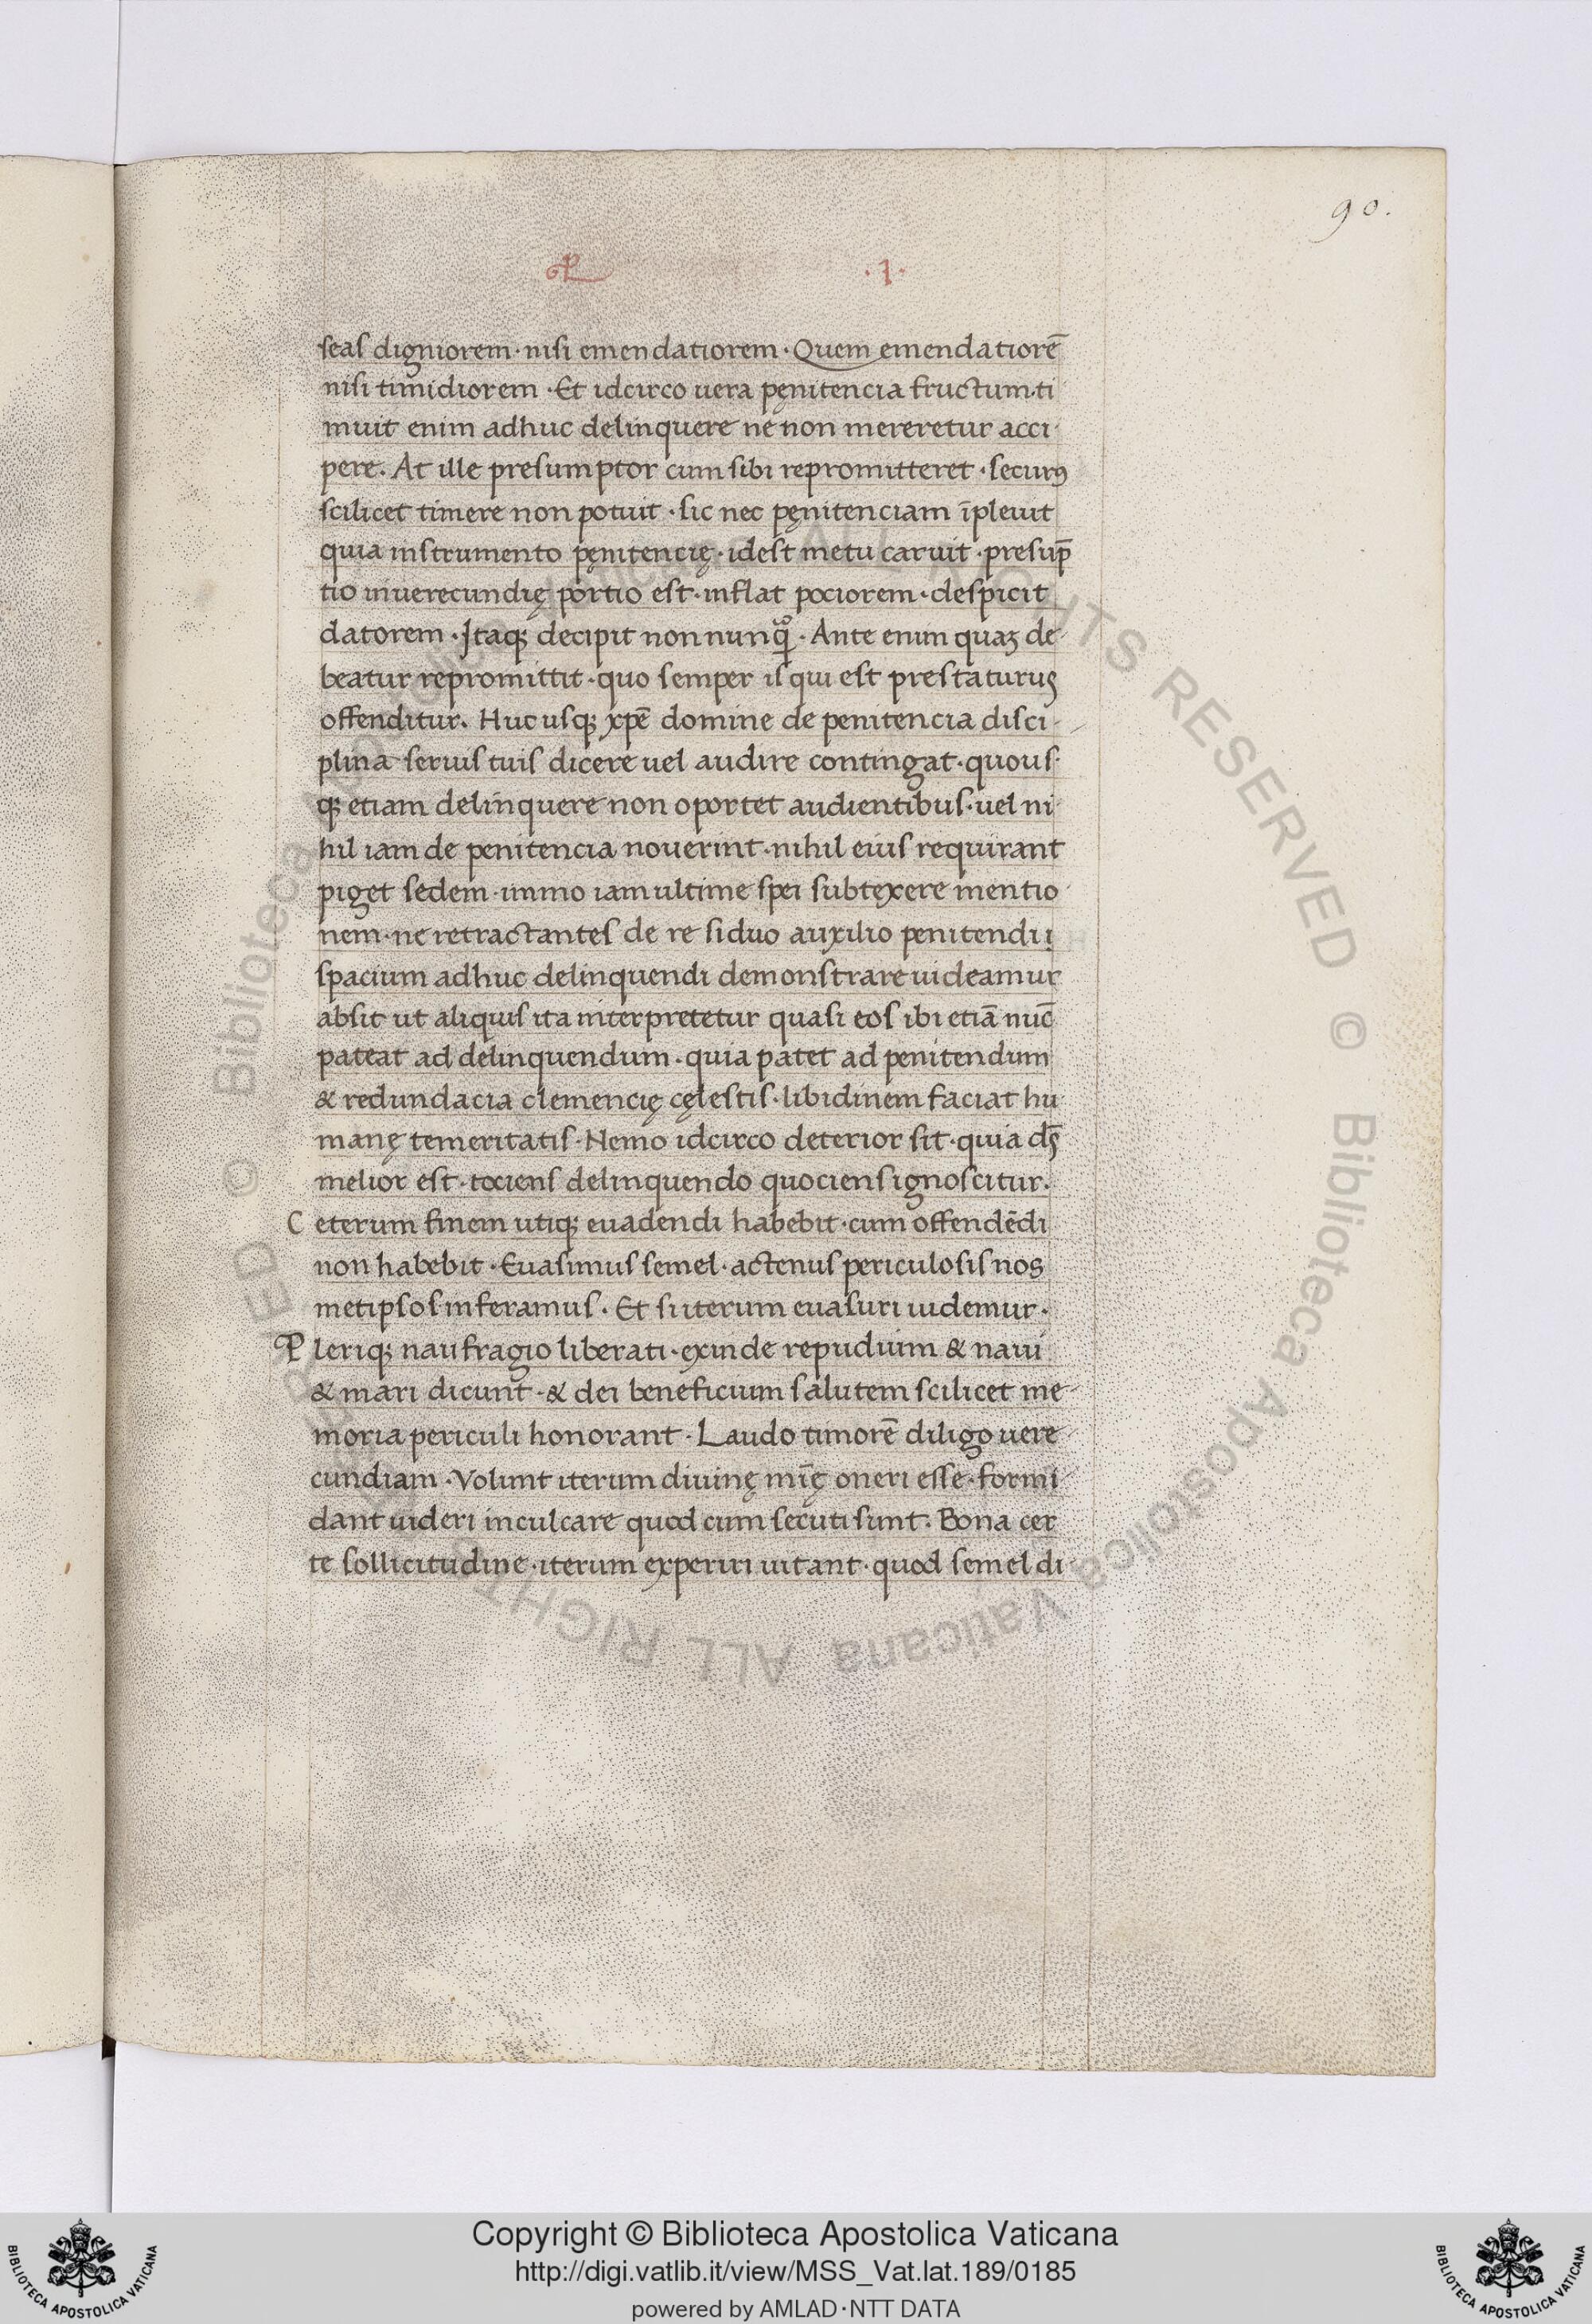 90.
·1·
seas digniorem · nisi emendatiorem · Quem emendatiorē
nisi timidiorem · Et idcirco uera pęnitencia fructum · ti
muit enim adhuc delinquere ne non mereretur acci
pere. At ille presumptor cum sibi repromitteret · securꝰ
scilicet timere non potuit · sic nec pęnitenciam īpleuit
quia instrumento pęnitencię · idest metu caruit · presup̄
tio inuerecundię portio est · inflat pociorem · despicit
datorem · Itaqꝫ decipit non nunꝙ̊ · Ante enim quaꝫ de
beatur repromittit · quo semper is qui est prestaturus
offenditur. Huc usqꝫ xp̄e domine de penitencia disci
plina seruis tuis dicere uel audire contingat · quous
qꝫ etiam delinquere non oportet audientibus · uel ni
hil iam de penitencia nouerint · nihil eius requirant
piget sedem · immo iam ultime spei subtexere mentio
nem · ne retractantes de residuo auxilio penitendi i
spacium adhuc delinquendi demonstrare uideamur
absit ut aliquis ita interpretetur quasi eos ibi etiā nūc
pateat ad delinquendum · quia patet ad penitendum
& redundacia clemencię cęlestis · libidinem faciat hu
manę temeritatis · Nemo idcirco deterior sit · quia ds̄
melior est · tociens delinquendo quociens ignoscitur.
Ceterum finem utiqꝫ euadendi habebit · cum offendēdi
non habebit · Euasimus semel · actenus periculosis nos
metipsos inferamus · Et si iterum euasuri uidemur ·
Pleriqꝫ naufragio liberati · exinde repudium & naui
& mari dicunt · & dei beneficium salutem scilicet me
moria periculi honorant · Laudo timorē diligo uere
cundiam · Volunt iterum diuinę mīę oneri esse · formi
dant uideri inculcare quod cum secuti sunt · Bona cer
te sollicitudine · iterum experiri uitant · quod semel di
© Biblioteca Apostolica Vaticana ALL RIGHTS RESERVED © Biblioteca Apostolica Vaticana ALL RIGHTS RESERVED
BIBLIOTECA APOSTOLICA VATICANA
Copyright © Biblioteca Apostolica Vaticana
http://digi.vatlib.it/view/MSS_Vat.lat.189/0185
powered by AMLAD·NTT DATA
BIBLIOTECA APOSTOLICA VATICANA